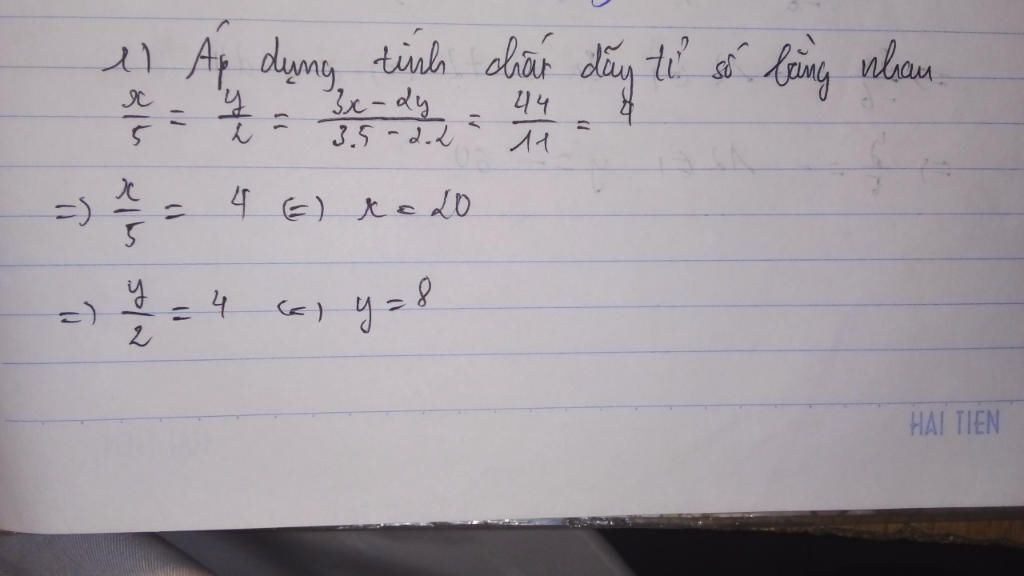 1) Áp dụng tính chất dãy tỉ số bằng nhau
x/5 = y/2 = (3x - 2y)/(3.5 - 2.2) = 44/11 = 4
=> x/5 = 4 <=> x = 20
=> y/2 = 4 <=> y = 8
HAI TIEN